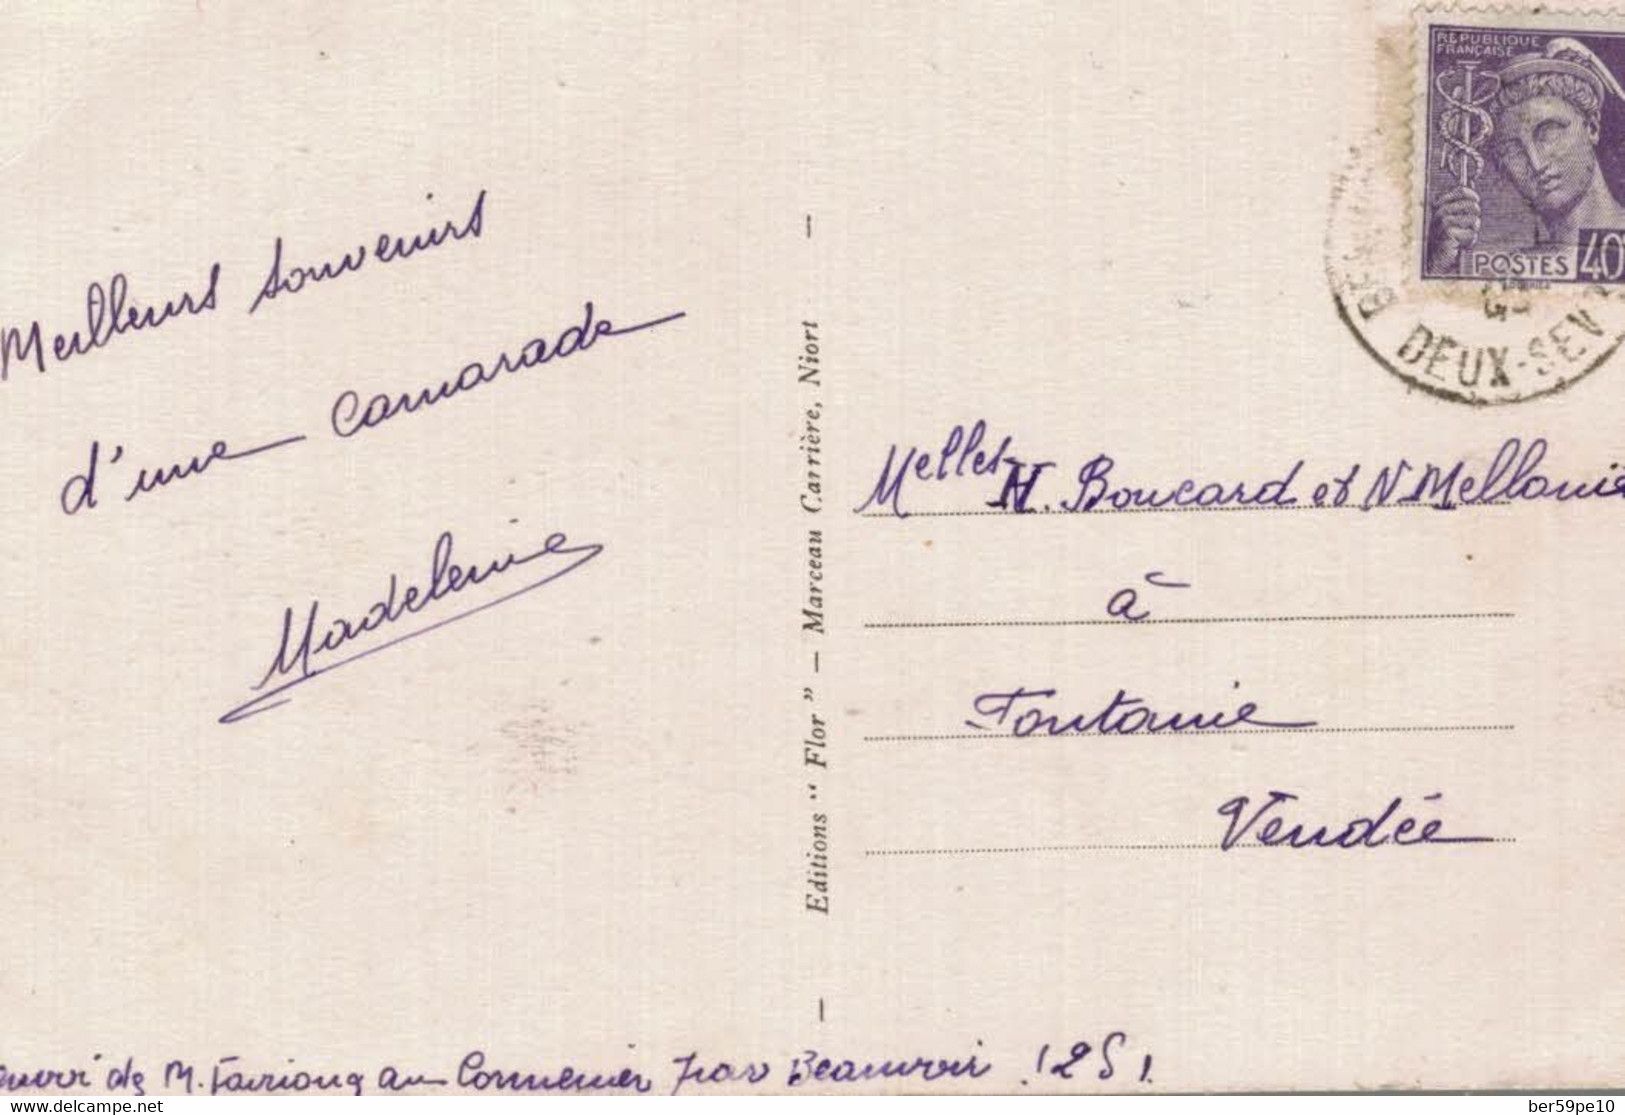 Meilleurs souvenirs
d'une camarade
Madeleine
Editions “ Flor ” — Marceau Carrière, Niort
REPUBLIQUE
FRANÇAISE
POSTES 40
DEUX-SEV
Melles H. Boucard et N Mellouin
à
Fontaine
Vendée
de M. au Cormenier par Beauvoir (2 S)
delcampe.net
ber59pe10